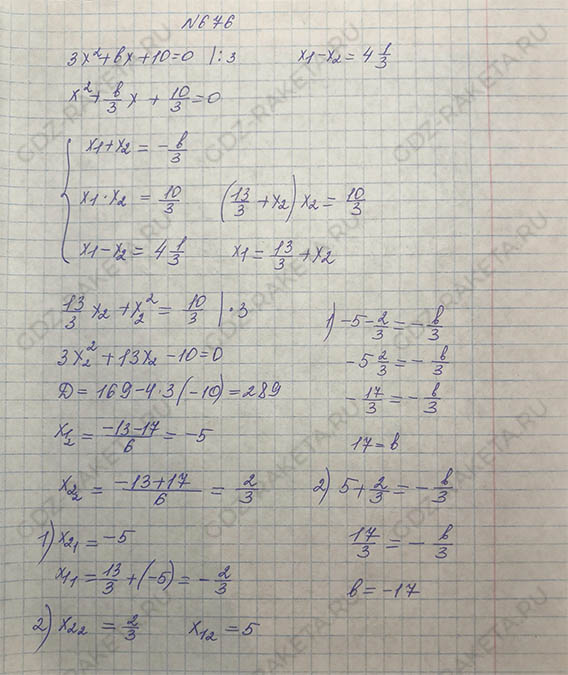 №676
3x²+bx+10=0 |:3 x₁-x₂=4 1/3
x²+b/3 x+10/3=0
{ x₁+x₂=-b/3
x₁·x₂=10/3 (13/3+x₂)x₂=10/3
x₁-x₂=4 1/3 x₁=13/3+x₂
13/3 x₂+x₂²=10/3 |·3
3x₂²+13x₂-10=0
D=169-4·3(-10)=289
x₁₂=(-13-17)/6=-5
x₂₂=(-13+17)/6=2/3
1) x₂₁=-5
x₁₁=13/3+(-5)=-2/3
2) x₂₂=2/3 x₁₂=5
1) -5-2/3=-b/3
-5 2/3=-b/3
-17/3=-b/3
17=b
2) 5+2/3=-b/3
17/3=-b/3
b=-17
GDZ-RAKETA.RU